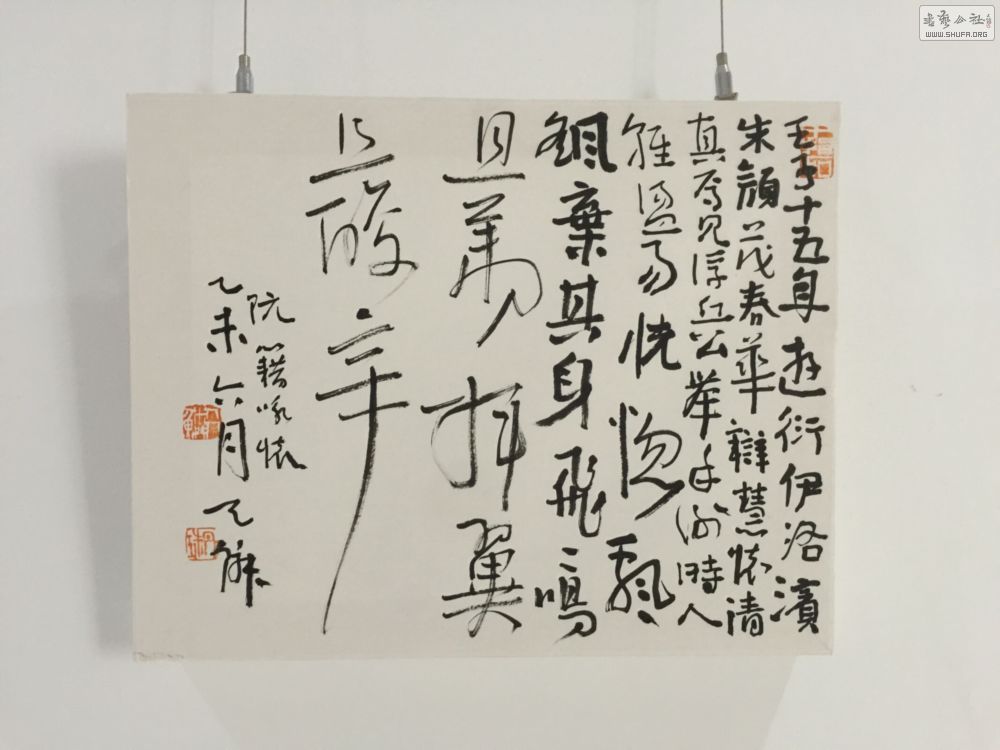 王子十五年遊衍伊洛濱
朱顔茂春華辯慧懷清
真焉見浮丘公舉手謝時人
輕盪易恍惚飄
颻棄其身飛〻鳴
且翔揮翼
且酸辛
阮籍詠懷
乙未六月天
書藝公社
WWW.SHUFA.ORG